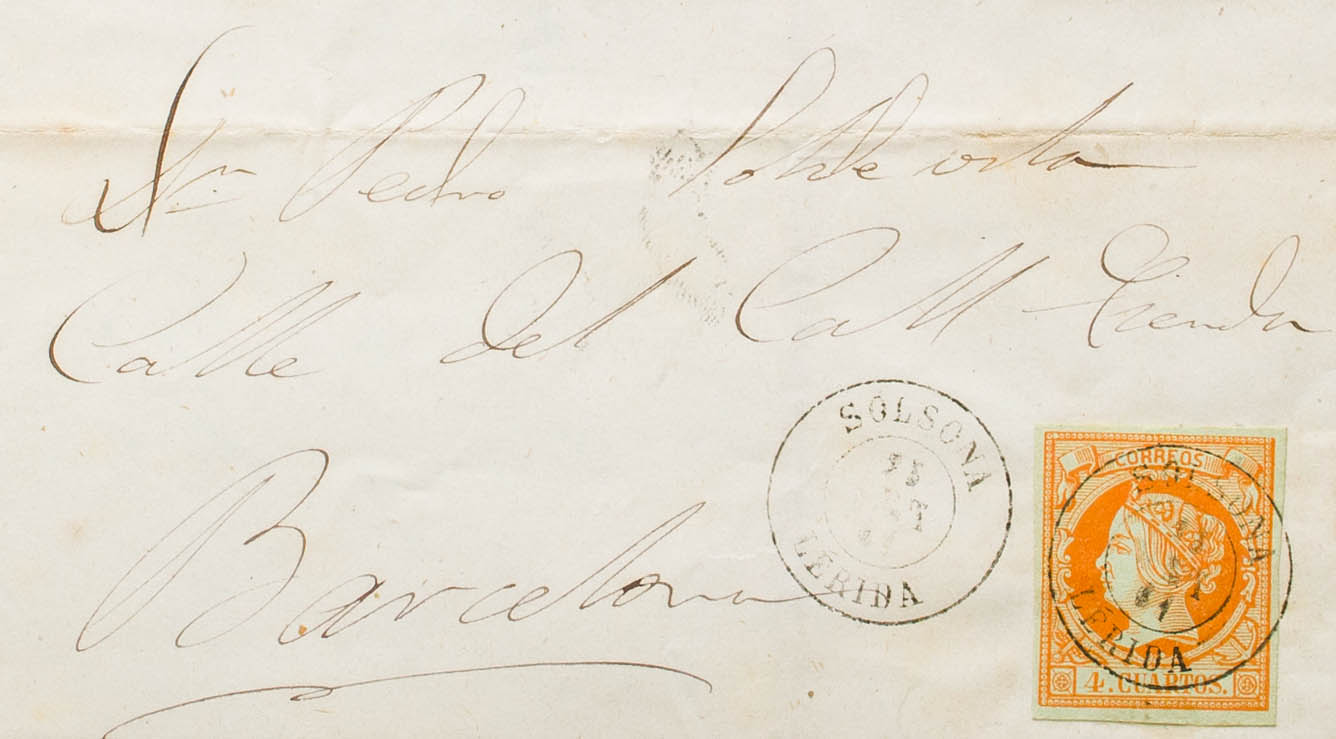 Sr. Pedro
Calle del Call Tienda
Barcelona
SOLSONA
LERIDA
CORREOS
SOLSONA
LERIDA
4. CUARTOS.